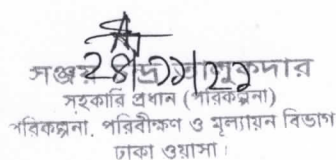 ২৪/১১/২১
সঞ্জয় চন্দ্র তালুকদার
সহকারি প্রধান (পরিকল্পনা)
পরিকল্পনা, পরিবীক্ষণ ও মূল্যায়ন বিভাগ
ঢাকা ওয়াসা।